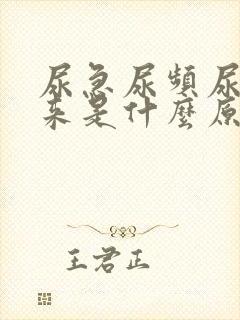 尿急尿頻尿
来是什麼原
王君正